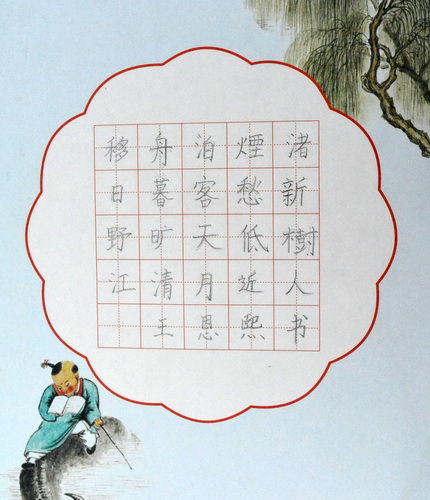 移舟泊煙渚
日暮客愁新
野旷天低樹
江清月近人
王恩熙书